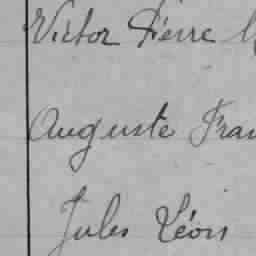 Victor Pierre
Auguste Fran
Jules Léon